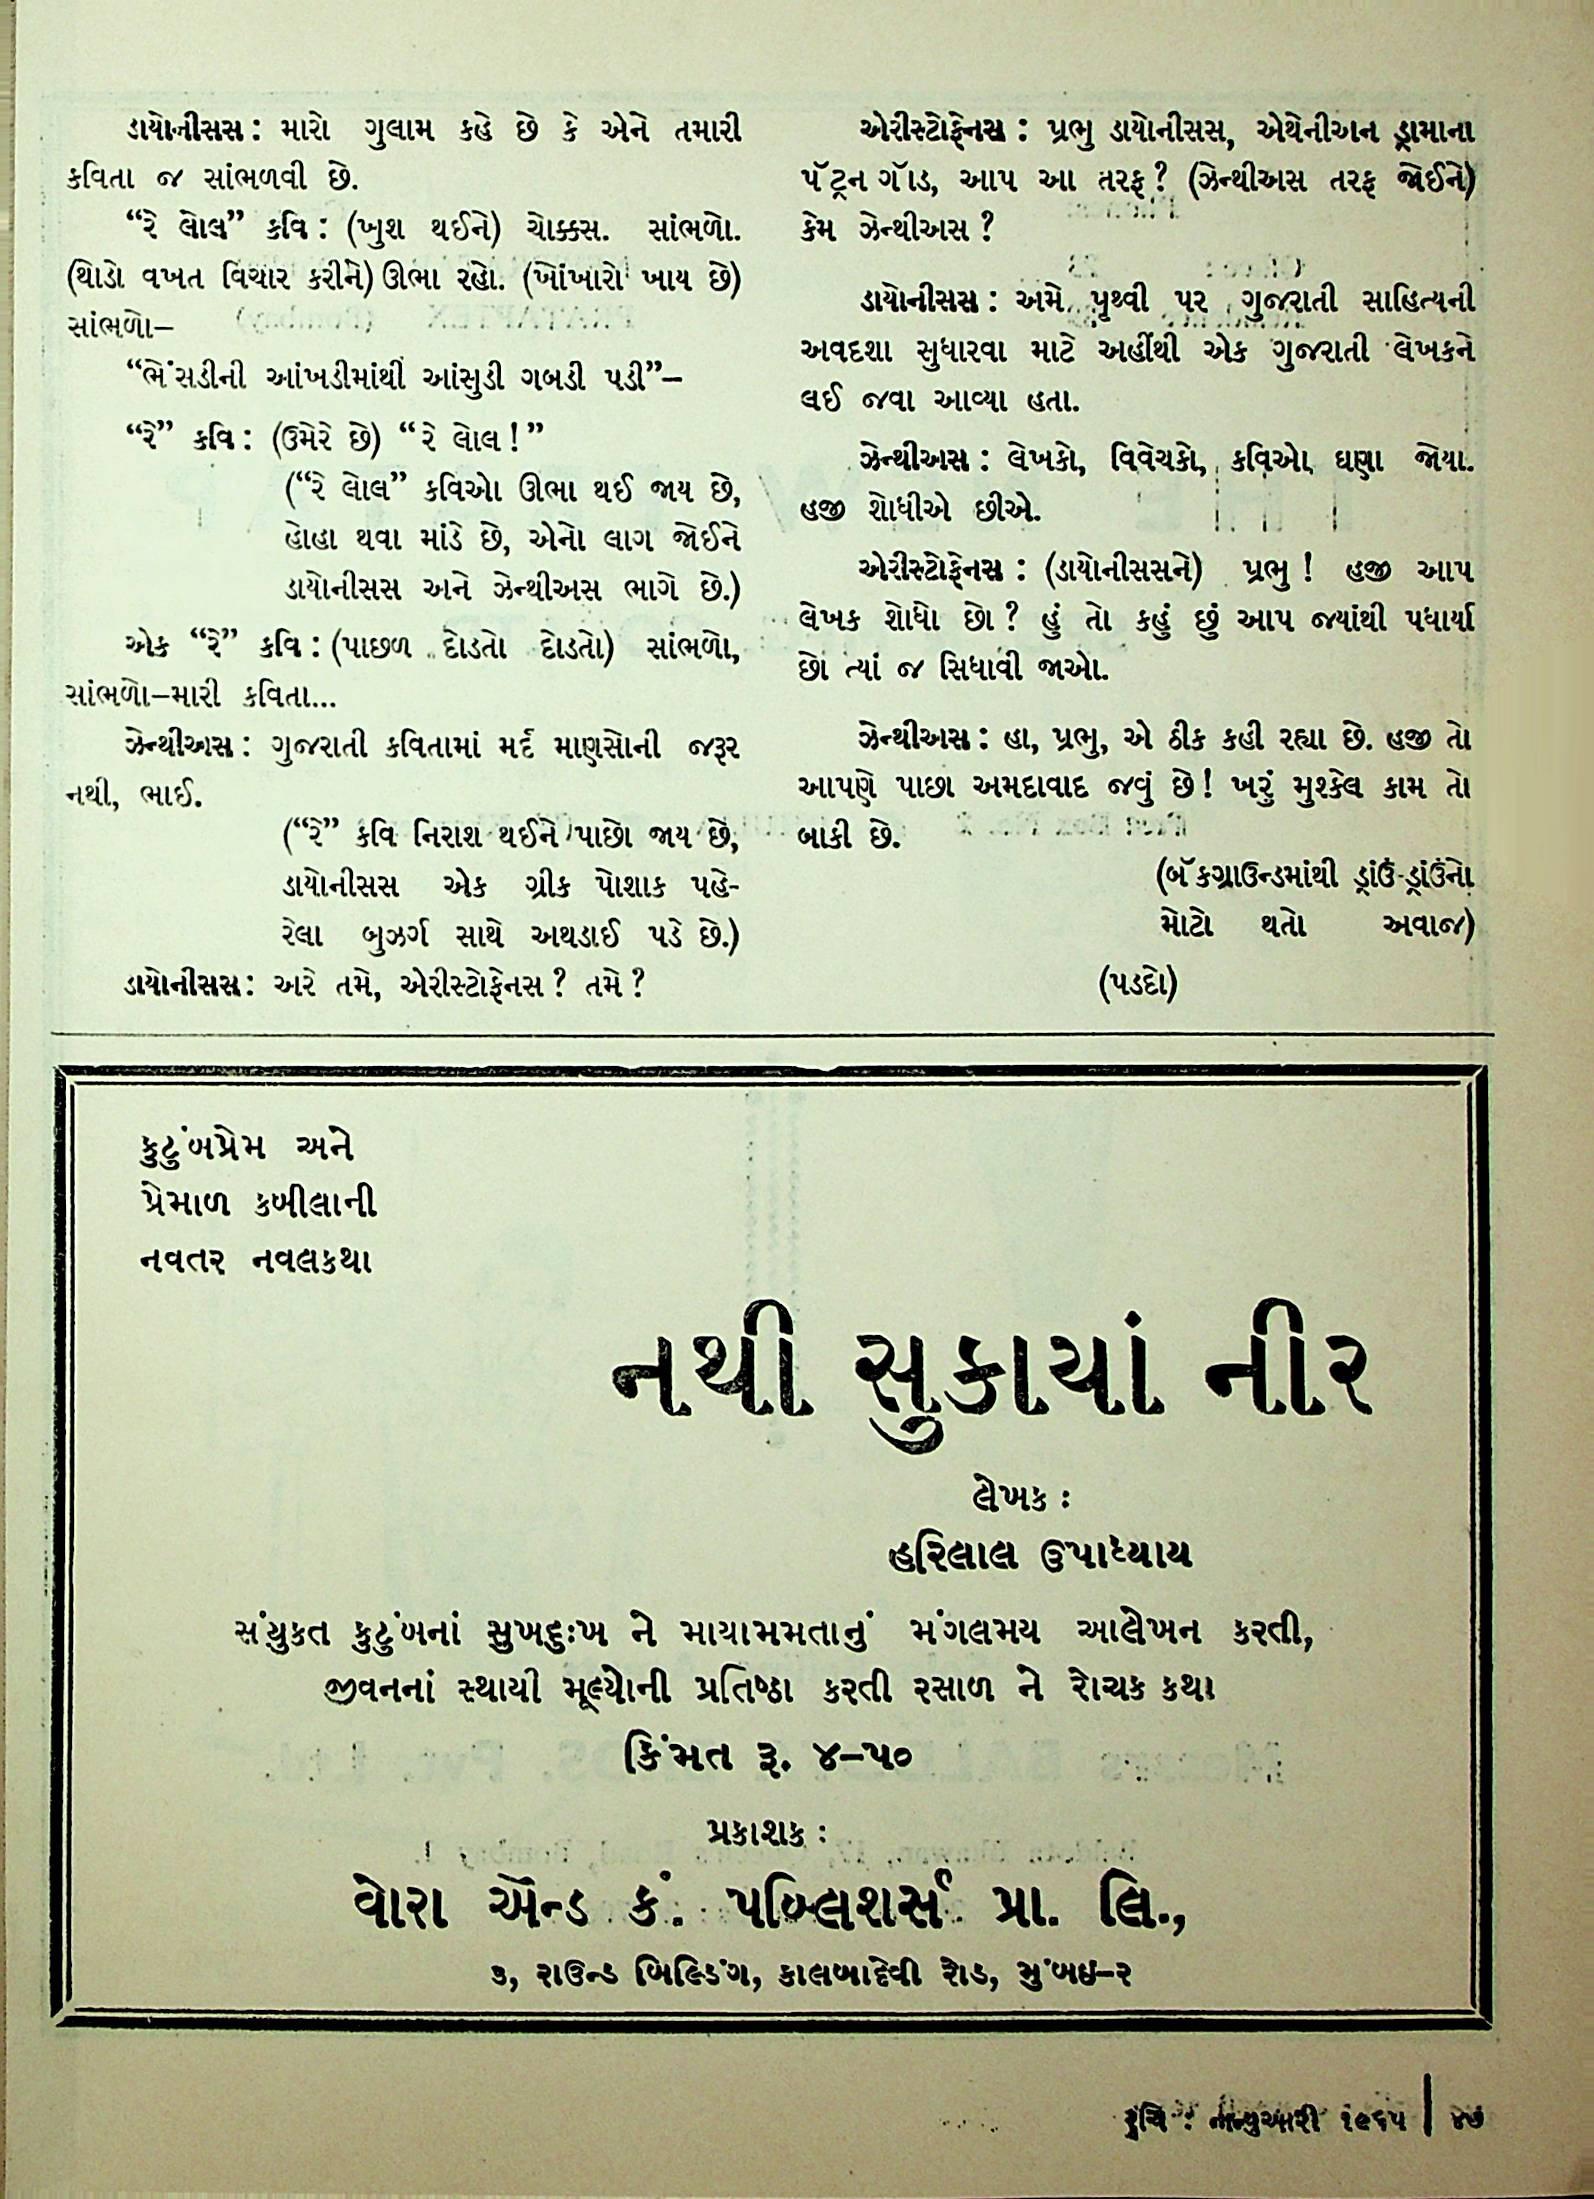 ડાયોનીસસ : મારો ગુલામ કહે છે કે એને તમારી
કવિતા જ સાંભળવી છે.
“રે લોલ” કવિ : (ખુશ થઈને) ચોક્કસ. સાંભળો.
(થોડો વખત વિચાર કરીને) ઊભા રહો. (ખોંખારો ખાય છે)
સાંભળો–
“ભેંસડીની આંખડીમાંથી આંસુડી ગબડી પડી”–
“રે” કવિ : (ઉમેરે છે) “રે લોલ !”
(“રે લોલ” કવિઓ ઊભા થઈ જાય છે,
હોહા થવા માંડે છે, એનો લાગ જોઈને
ડાયોનીસસ અને ઝેન્થીઅસ ભાગે છે.)
એક “રે” કવિ : (પાછળ દોડતો દોડતો) સાંભળો,
સાંભળો–મારી કવિતા...
ઝેન્થીઅસ : ગુજરાતી કવિતામાં મર્દ માણસોની જરૂર
નથી, ભાઈ.
(“રે” કવિ નિરાશ થઈને પાછો જાય છે,
ડાયોનીસસ એક ગ્રીક પોશાક પહે-
રેલા બુઝર્ગ સાથે અથડાઈ પડે છે.)
ડાયોનીસસ : અરે તમે, એરીસ્ટોફેનસ ? તમે ?
એરીસ્ટોફેનસ : પ્રભુ ડાયોનીસસ, એથેનીઅન ડ્રામાના
પૅટ્રન ગૉડ, આપ આ તરફ ? (ઝેન્થીઅસ તરફ જોઈને)
કેમ ઝેન્થીઅસ ?
ડાયોનીસસ : અમે પૃથ્વી પર ગુજરાતી સાહિત્યની
અવદશા સુધારવા માટે અહીંથી એક ગુજરાતી લેખકને
લઈ જવા આવ્યા હતા.
ઝેન્થીઅસ : લેખકો, વિવેચકો, કવિઓ ઘણા જોયા.
હજી શોધીએ છીએ.
એરીસ્ટોફેનસ : (ડાયોનીસસને) પ્રભુ ! હજી આપ
લેખક શોધો છો ? હું તો કહું છું આપ જ્યાંથી પધાર્યા
છો ત્યાં જ સિધાવી જાઓ.
ઝેન્થીઅસ : હા, પ્રભુ, એ ઠીક કહી રહ્યા છે. હજી તો
આપણે પાછા અમદાવાદ જવું છે ! ખરું મુશ્કેલ કામ તો
બાકી છે.
(બૅકગ્રાઉન્ડમાંથી ડ્રાંઉં-ડ્રાંઉંનો
મોટો થતો અવાજ)
(પડદો)
કુટુંબપ્રેમ અને
પ્રેમાળ કબીલાની
નવતર નવલકથા
નથી સુકાયાં નીર
લેખક :
હરિલાલ ઉપાધ્યાય
સંયુકત કુટુંબનાં સુખદુઃખ ને માયામમતાનું મંગલમય આલેખન કરતી,
જીવનનાં સ્થાયી મૂલ્યોની પ્રતિષ્ઠા કરતી રસાળ ને રોચક કથા
કિંમત રૂ. ૪–૫૦
પ્રકાશક :
વોરા ઍન્ડ કં. પબ્લિશર્સ પ્રા. લિ.,
૩, રાઉન્ડ બિલ્ડિંગ, કાલબાદેવી રોડ, મુંબઇ–૨
રુચિ : જાન્યુઆરી ૧૯૬૫ | ૪૭